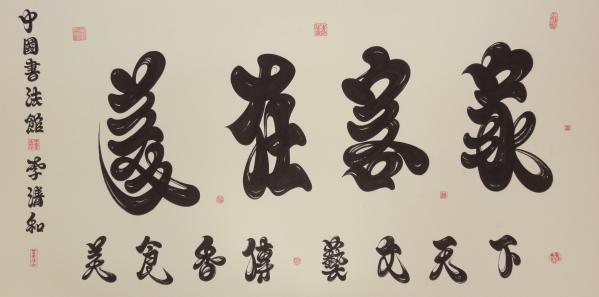 愛在客家
美食香傳藝文天下
中國書法館 李清和